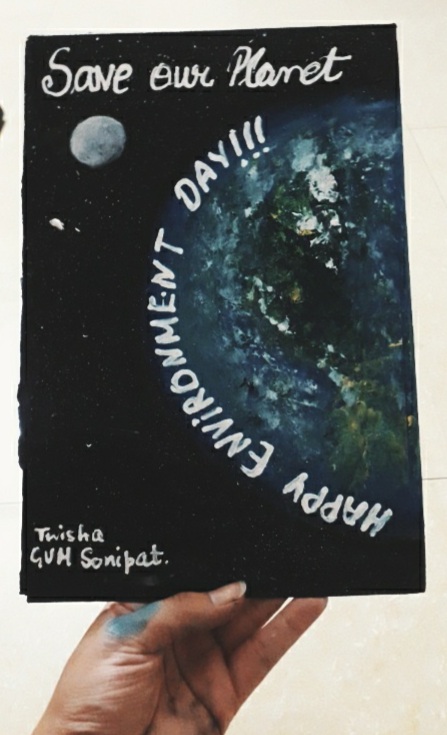 Save our Planet
HAPPY ENVIRONMENT DAY!!!
Twisha
GVM Sonipat.